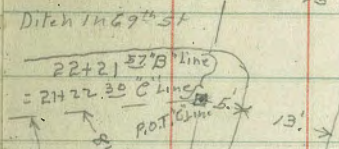 Ditch in 69th St
22+21 57 "B" Line
= 21+22.30 "C" Line
P.O.T. "C" Line 5.'
13.'